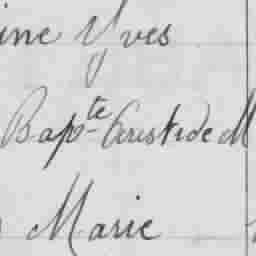 ine Yves
Bapte Aristide M
Marie